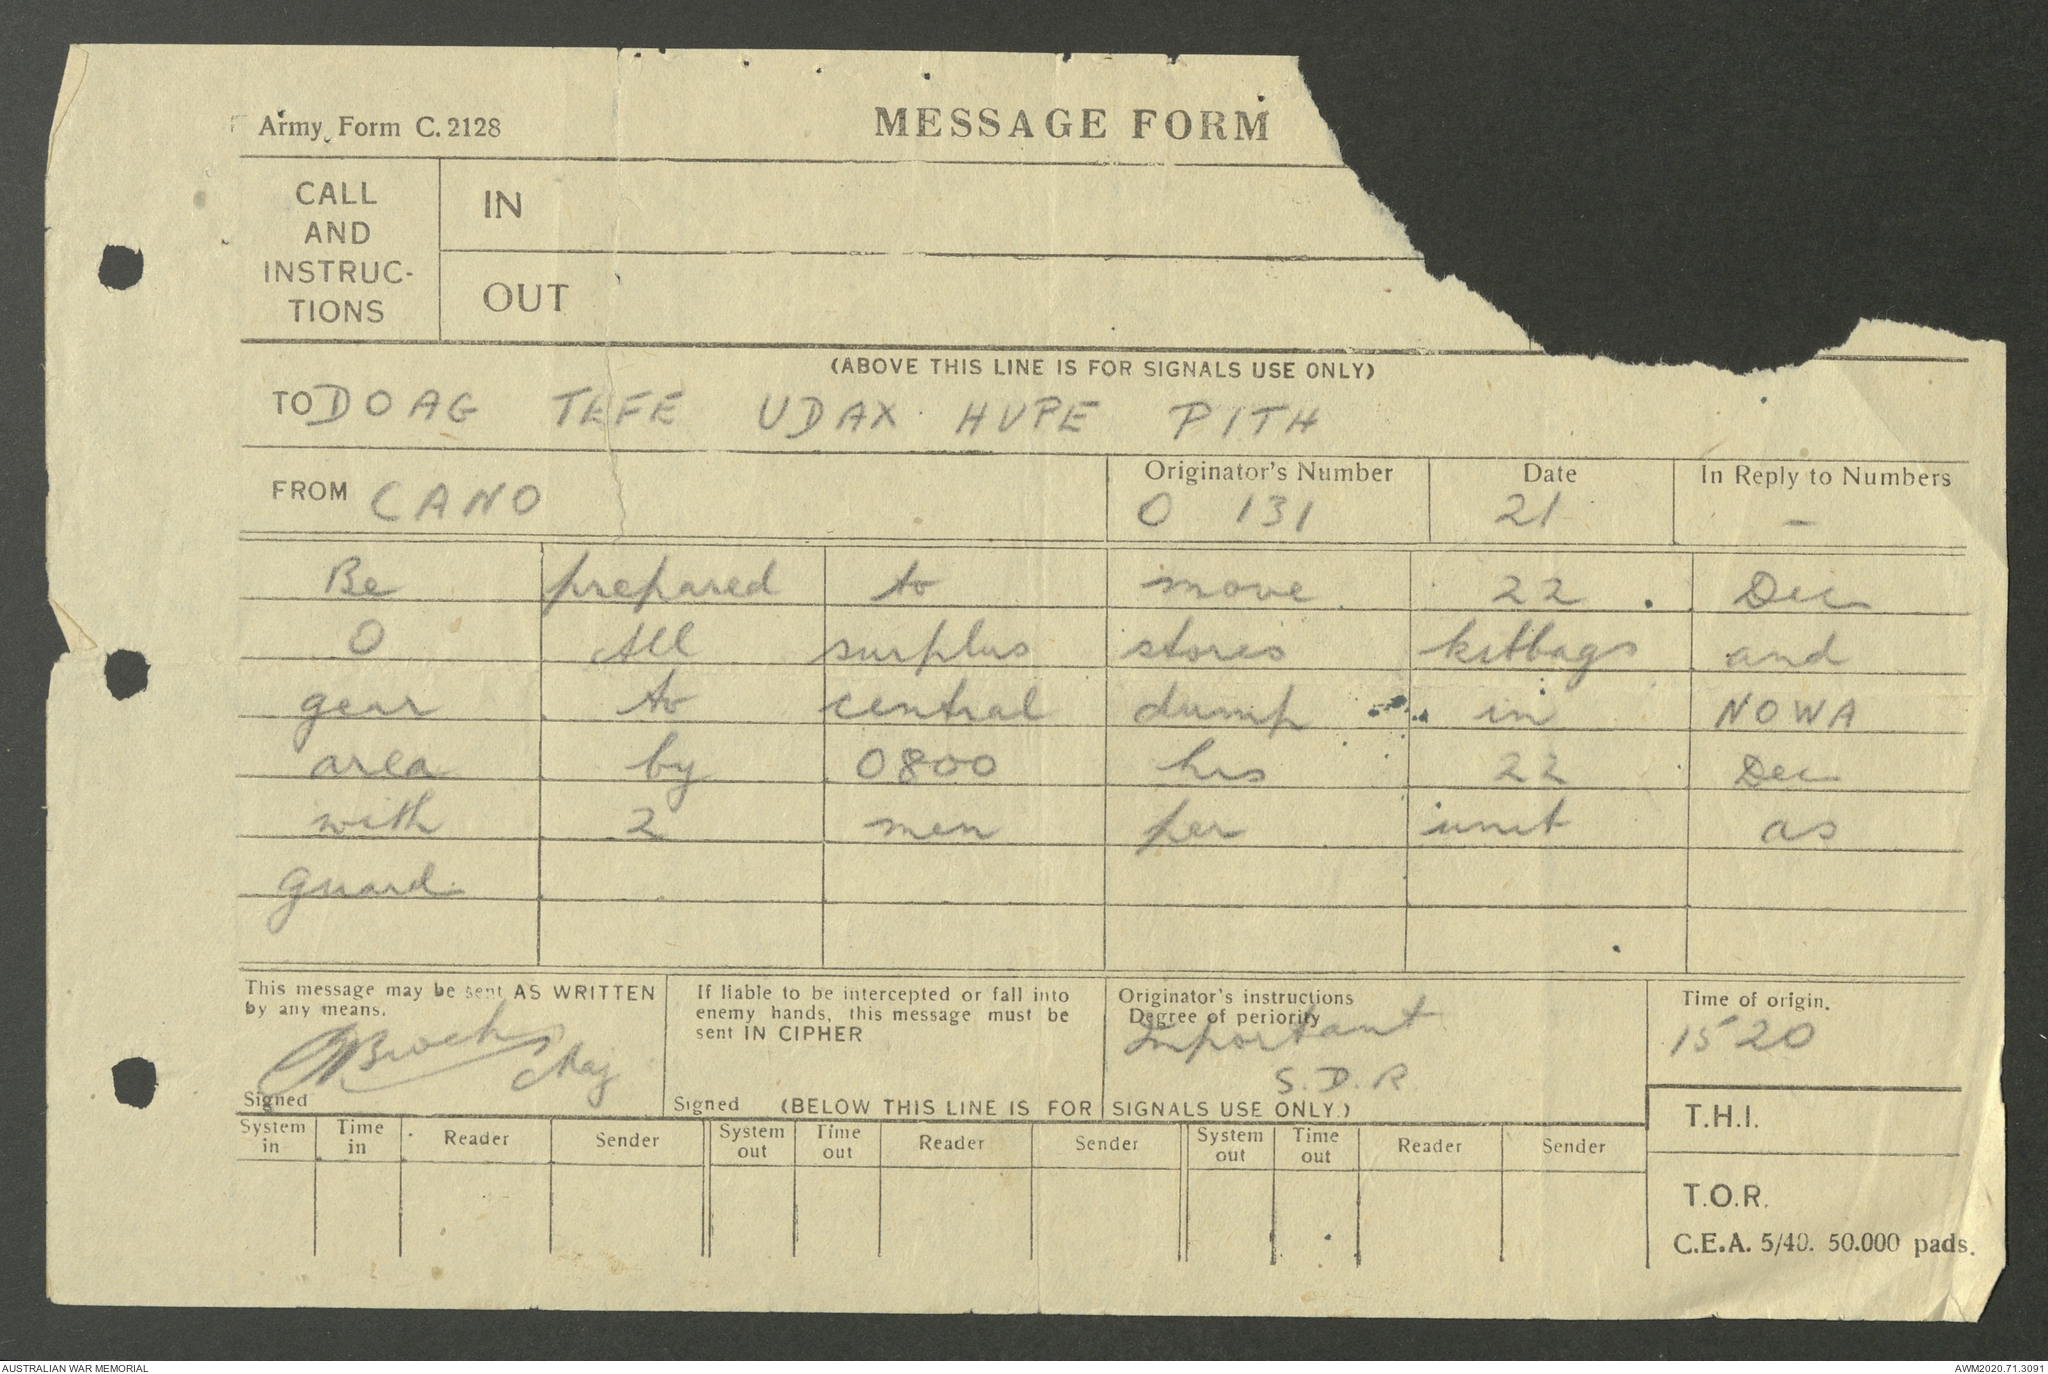 Army Form C. 2128
MESSAGE FORM
CALL AND INSTRUC- TIONS
IN
OUT
(ABOVE THIS LINE IS FOR SIGNALS USE ONLY)
TO DOAG TEFE UDAX HUPE PITH
FROM CANO
Originator's Number
O 131
Date
21
In Reply to Numbers
-
Be prepared to move 22 Dec
O All surplus stores kitbags and
gear to central dump in NOWA
area by 0800 hrs 22 Dec
with 2 men per unit as
guard
This message may be sent AS WRITTEN
by any means.
Maj
Signed
If liable to be intercepted or fall into
enemy hands, this message must be
sent IN CIPHER
Signed
Originator's instructions
Degree of periority
Important
S.D.R
Time of origin.
1520
(BELOW THIS LINE IS FOR SIGNALS USE ONLY.)
System in
Time in
Reader
Sender
System out
Time out
Reader
Sender
System out
Time out
Reader
Sender
T.H.I.
T.O.R.
C.E.A. 5/40. 50.000 pads.
AUSTRALIAN WAR MEMORIAL
AWM2020.71.3091